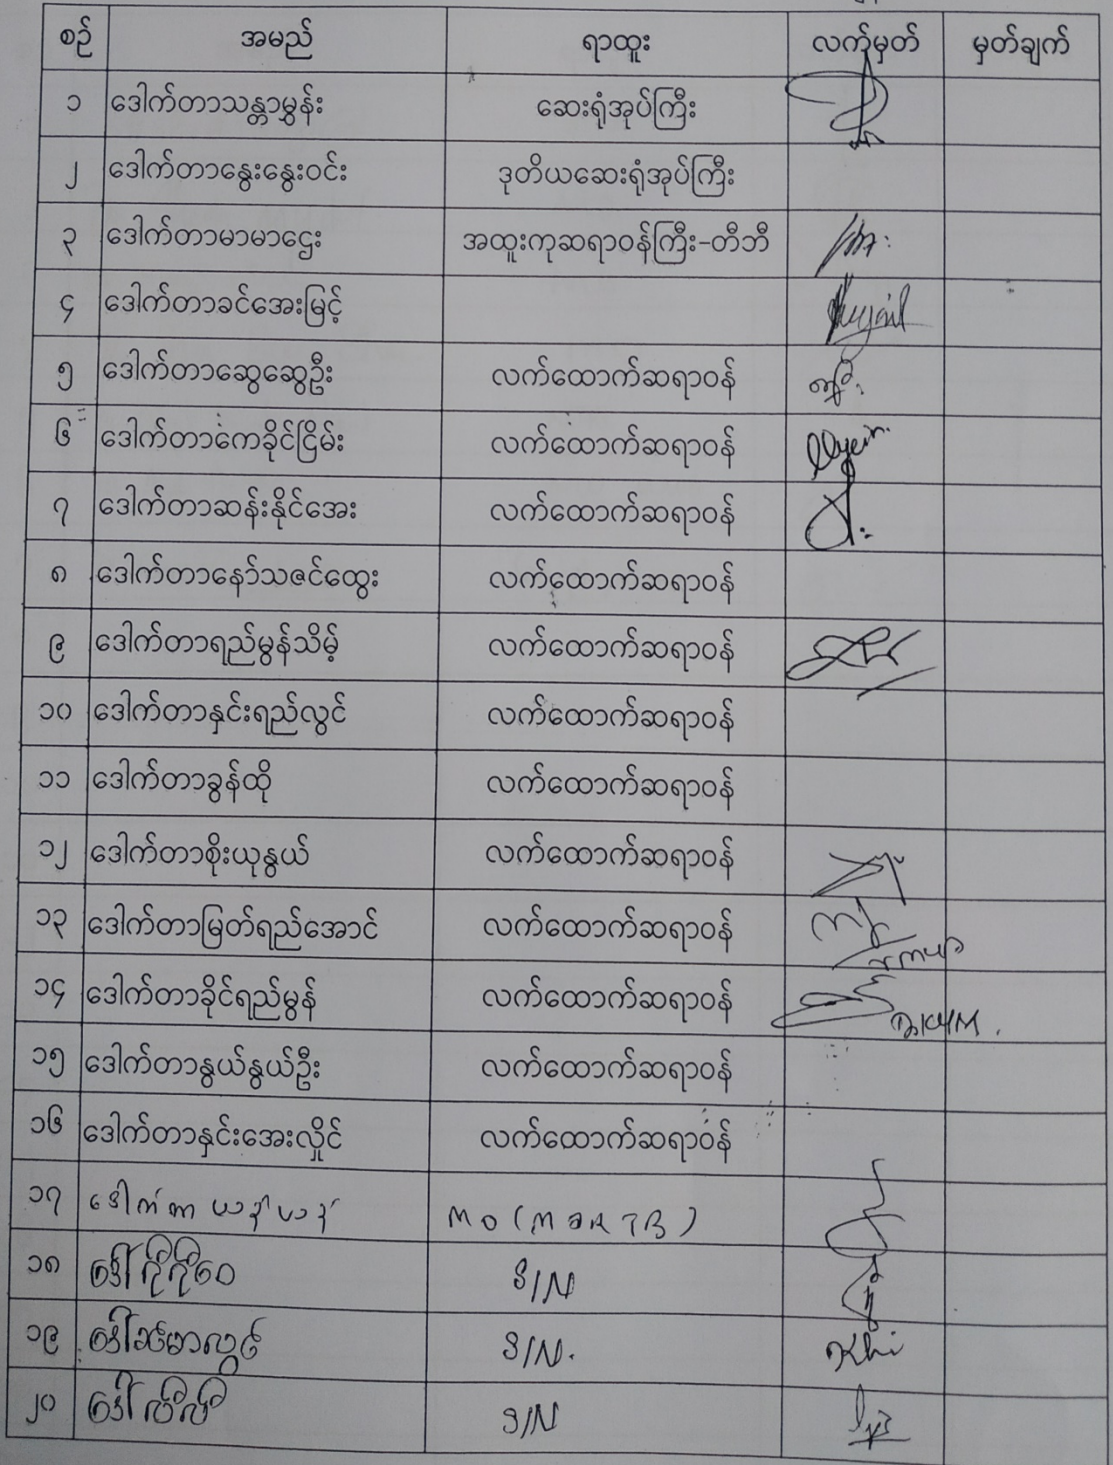 စဉ် အမည် ရာထူး လက်မှတ် မှတ်ချက်
၁ ဒေါက်တာသန္တာမွှန်း ဆေးရုံအုပ်ကြီး
၂ ဒေါက်တာနွေးနွေးဝင်း ဒုတိယဆေးရုံအုပ်ကြီး
၃ ဒေါက်တာမာမာဌေး အထူးကုဆရာဝန်ကြီး-တီဘီ
၄ ဒေါက်တာခင်အေးမြင့်
၅ ဒေါက်တာဆွေဆွေဦး လက်ထောက်ဆရာဝန်
၆ ဒေါက်တာကေခိုင်ငြိမ်း လက်ထောက်ဆရာဝန် Nyein
၇ ဒေါက်တာဆန်းနိုင်အေး လက်ထောက်ဆရာဝန်
၈ ဒေါက်တာနော်သဇင်ထွေး လက်ထောက်ဆရာဝန်
၉ ဒေါက်တာရည်မွန်သိမ့် လက်ထောက်ဆရာဝန်
၁၀ ဒေါက်တာနှင်းရည်လွင် လက်ထောက်ဆရာဝန်
၁၁ ဒေါက်တာခွန်ထို လက်ထောက်ဆရာဝန်
၁၂ ဒေါက်တာစိုးယုနွယ် လက်ထောက်ဆရာဝန်
၁၃ ဒေါက်တာမြတ်ရည်အောင် လက်ထောက်ဆရာဝန်
၁၄ ဒေါက်တာခိုင်ရည်မွန် လက်ထောက်ဆရာဝန်
၁၅ ဒေါက်တာနွယ်နွယ်ဦး လက်ထောက်ဆရာဝန်
၁၆ ဒေါက်တာနှင်းအေးလှိုင် လက်ထောက်ဆရာဝန်
၁၇ ဒေါက်တာ MO (MDR TB)
၁၈ ဒေါ်ကိုကိုဝေ S/N
၁၉ ဒေါ်ခင်မာလွင် S/N. Khi
၂၀ ဒေါ်လီလီ S/N